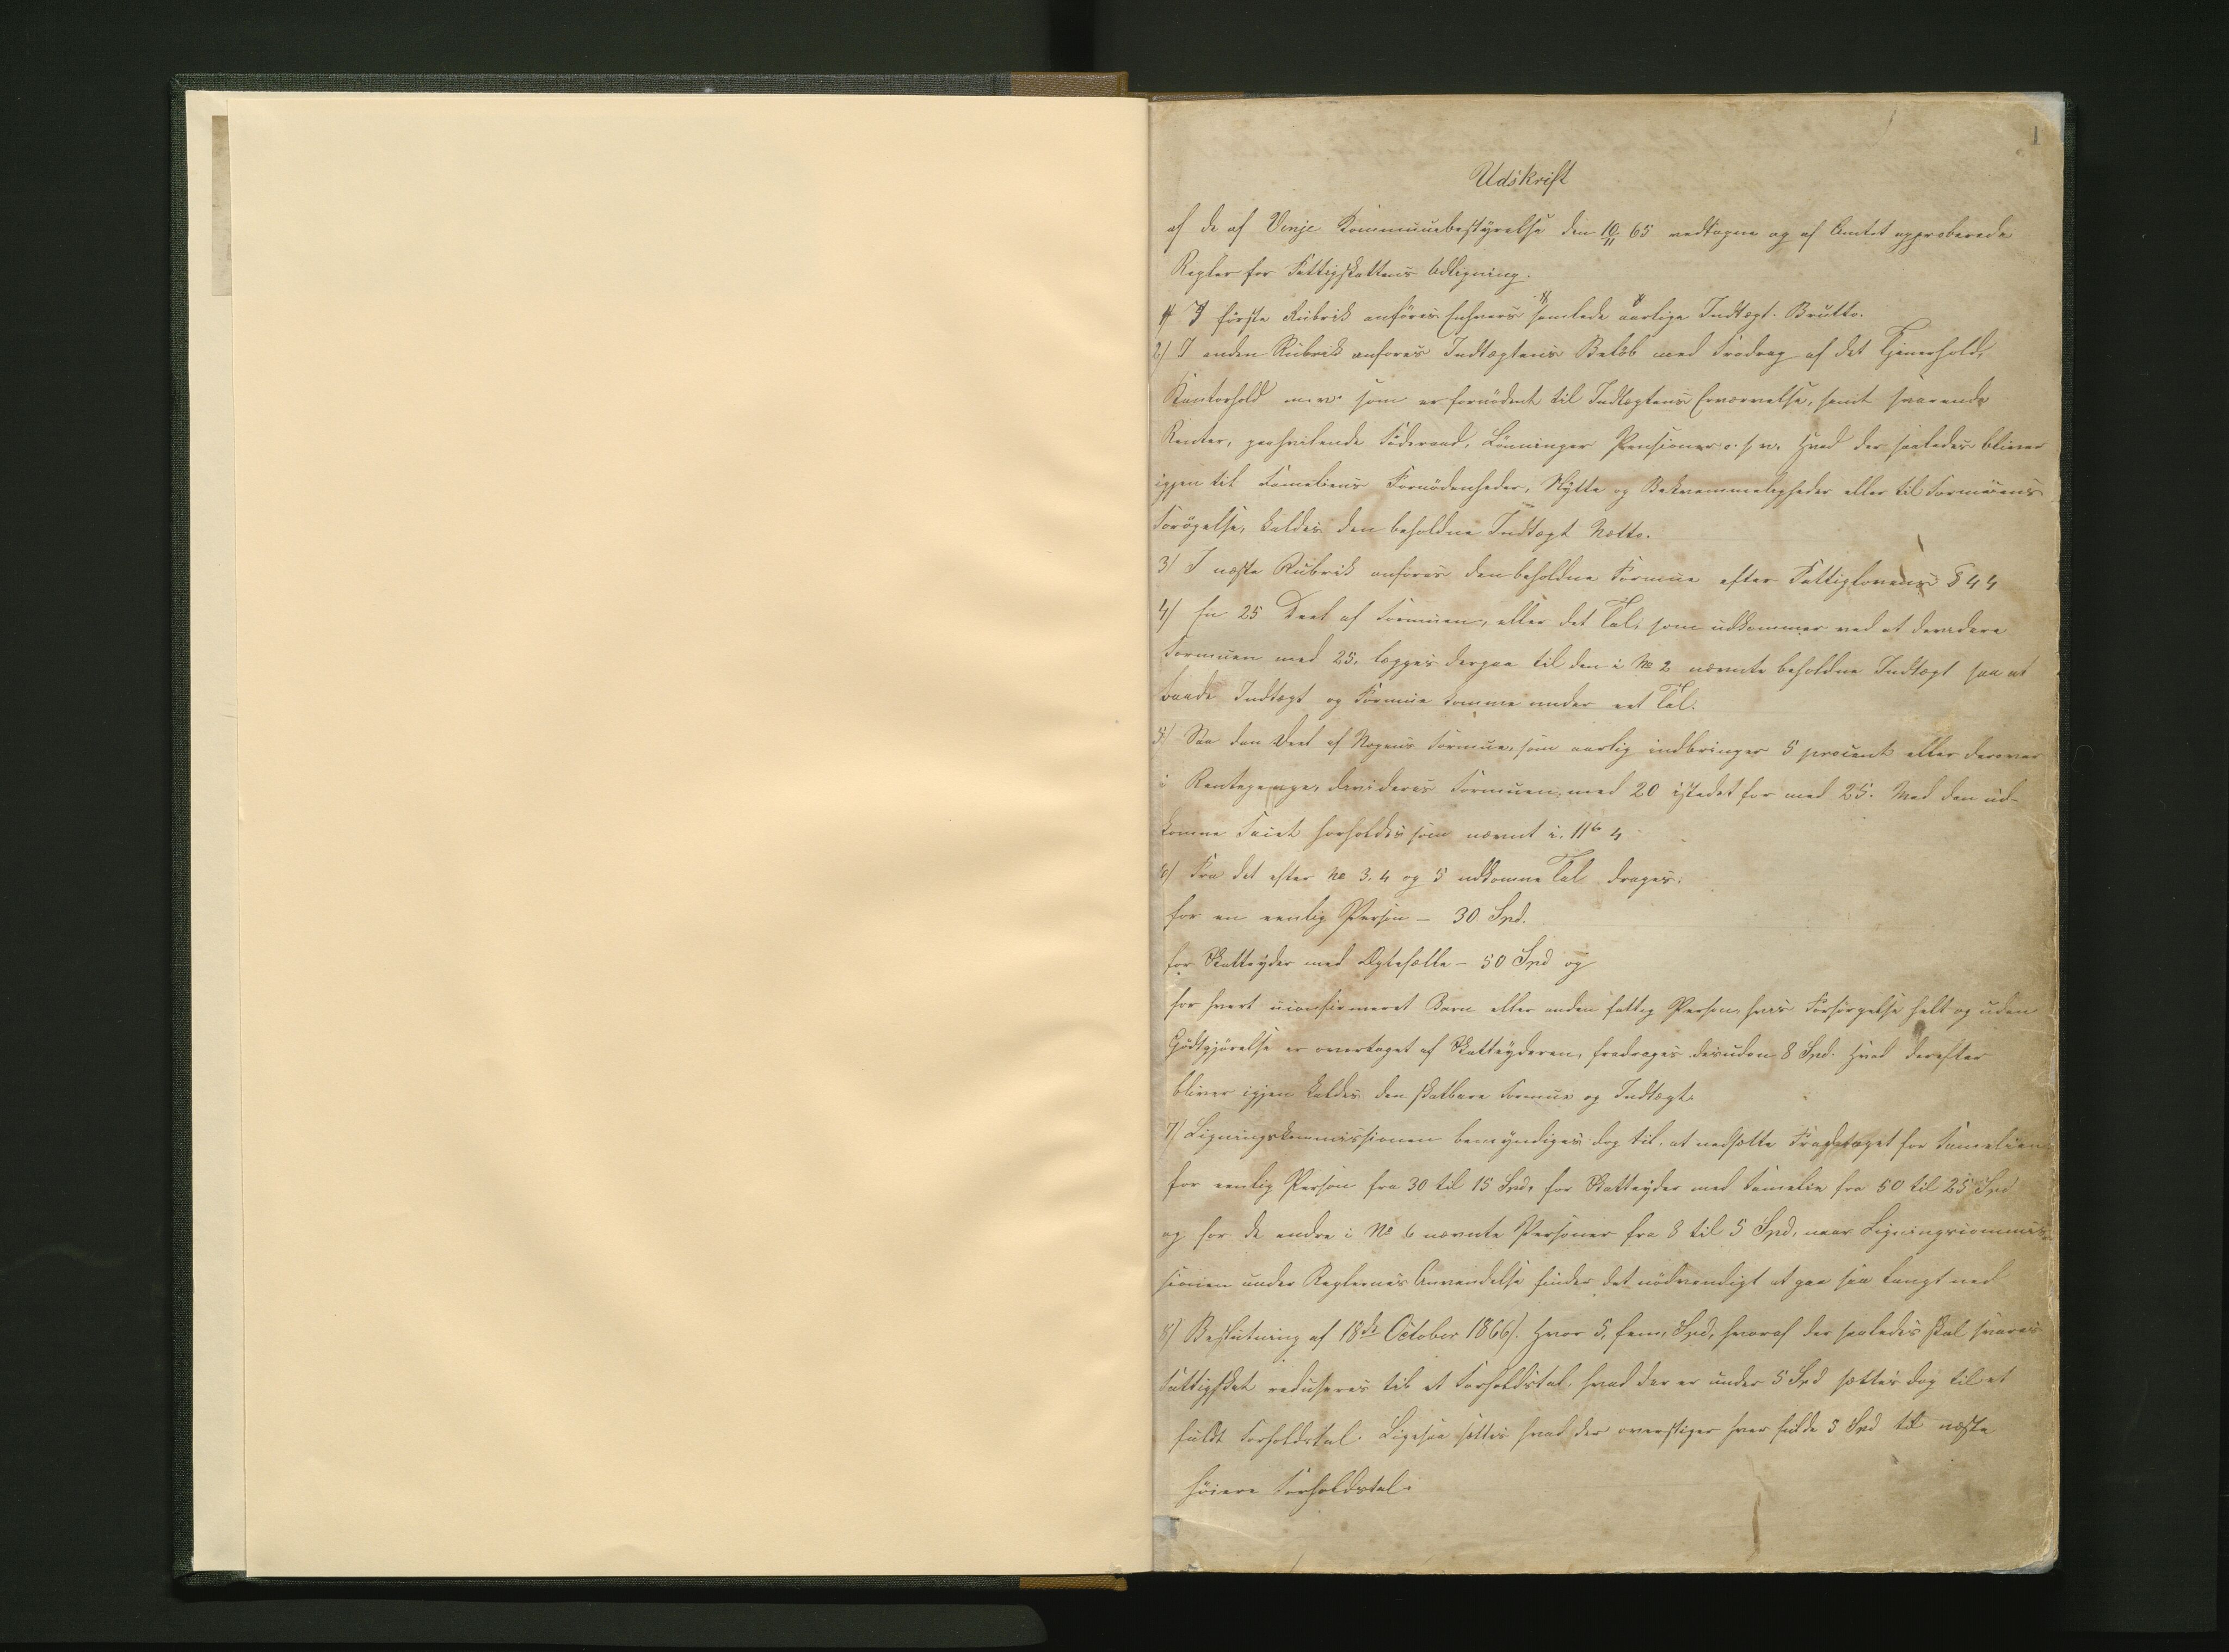 1
Udskrift
af de af Vinje Kommunebestyrelse den 10/11 65 vedtagne og af Amtet approberede
Regler for Fattigskattens Udligning.
1) I første Rubrik anføres Enhvers samlede aarlige Indtægt. Brutto.
2) I anden Rubrik anføres Indtægtens Beløb med Fradrag af det Tjenerhold,
Kontorhold m.v. som er fornødent til Indtægtens Erværvelse, samt svarende
Renter, paahvilende Føderaad, Lønninger Pensioner o.s.v. Hvad der saaledes bliver
igjen til Familiens Fornødenheder, Nytte og Bekvemmeligheder eller til Formuens
Forøgelse, kaldes den beholdne Indtægt Netto.
3) I næste Rubrik anføres den beholdne Formue efter Fattiglovens § 44
4) En 25 Deel af Formuen, eller det Tal, som udkommer ved at devidere
Formuen med 25, lægges derpaa til den i No 2 nævnte beholdne Indtægt saa at
baade Indtægt og Formue komme under eet Tal.
5) Paa den Deel af Nogens Formue, som aarlig indbringer 5 procent eller derover
i Rentepenge, devideres Formuen med 20 istedet for med 25. Med den ud-
komne Facit forholdes som nævnt i No 4
6) Fra det efter No 3, 4 og 5 udkomne Tal drages:
for en enlig Person – 30 Spd.
for Skatteyder med Ægtefælle – 50 Spd og
for hvert uconfirmeret Barn eller anden fattig Person, hvis Forsørgelse helt og uden
Godtgjørelse er overtaget af Skatteyderen, fradrages desuden 8 Spd. Hvad derefter
bliver igjen kaldes den skatbare Formue og Indtægt.
7) Ligningskommissionen bemyndiges dog til at nedsætte Fradraget for Familien
for enlig Person fra 30 til 15 Spd, for Skatteyder med Familie fra 50 til 25 Spd
og for de andre i No 6 nævnte Personer fra 8 til 5 Spd, naar Ligningscommis-
sionen under Reglernes Anvendelse finder det nødvendigt at gaa saa langt ned
8) Beslutning af 18de October 1866). Hver 5, fem, Spd, hvoraf der saaledes skal svares
Fattigskat reduseres til et Forholdstal, hvad der er under 5 Spd sættes dog til et
fuldt Forholdstal. Ligesaa sættes hvad der overstiger hver fulde 5 Spd til næste
høiere Forholdstal.